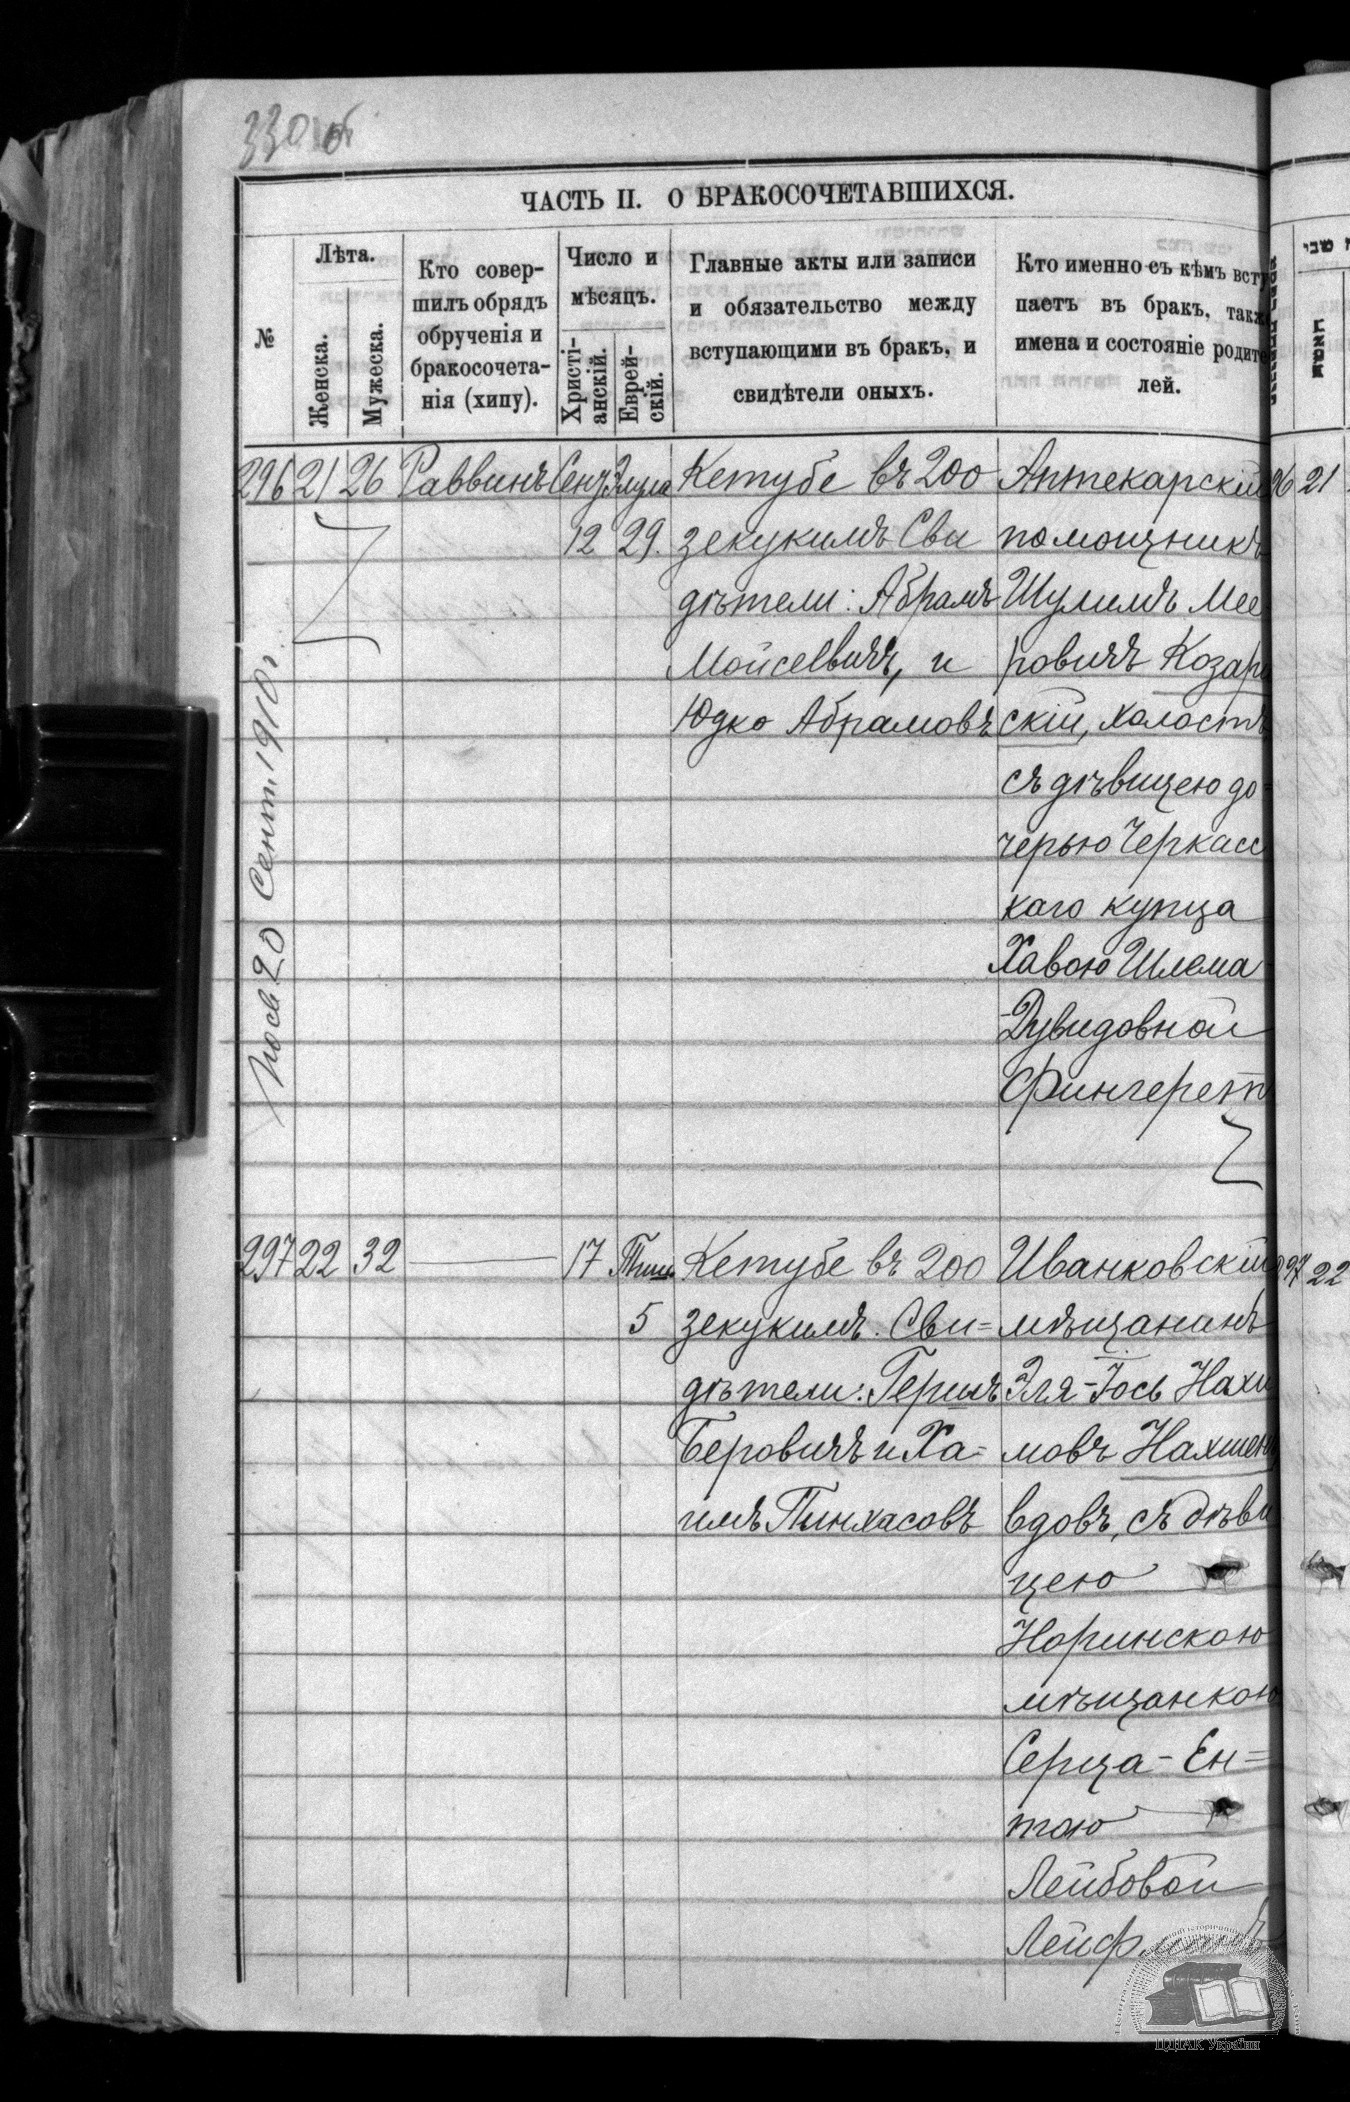 330 об
ЧАСТЬ II. О БРАКОСОЧЕТАВШИХСЯ.
№
Лѣта.
Женска.
Мужеска.
Кто совер-
шилъ обрядъ
обрученія и
бракосочета-
нія (хипу).
Число и
мѣсяцъ.
Христі-
анскій.
Еврей-
скій.
Главные акты или записи
и обязательство между
вступающими въ бракъ, и
свидѣтели оныхъ.
Кто именно съ кѣмъ всту
паетъ въ бракъ, такж
имена и состояніе родите
лей.
296 21 26 Раввинъ Сент. Элула
12 29.
Кетубе въ 200
зекукимъ Сви
дѣтели: Абрамъ
Мойсеевичъ, и
Юдко Абрамовъ
Аптекарскій
помощникъ
Шулимъ Мее
ровичъ Козар
скій, холостъ
съ дѣвицею до=
черью Черкасс
каго купца
Хавою Шлема
Дувидовной
Фингерет
20 Сент. 1910 г.
297 22 32 17 Тиш.
5
Кетубе въ 200
зекукимъ. Сви=
дѣтели: Гершъ
Беровичъ и Ха=
имъ Пинхасовъ
Иванковскій
мѣщанинъ
Эля-Іось Нахи
мовъ Нахшен
вдовъ, съ дѣви
цею
Норинскою
мѣщанкою
Серца-Ен=
тою
Лейбовой
96 21
97 22
ЦДІАК України